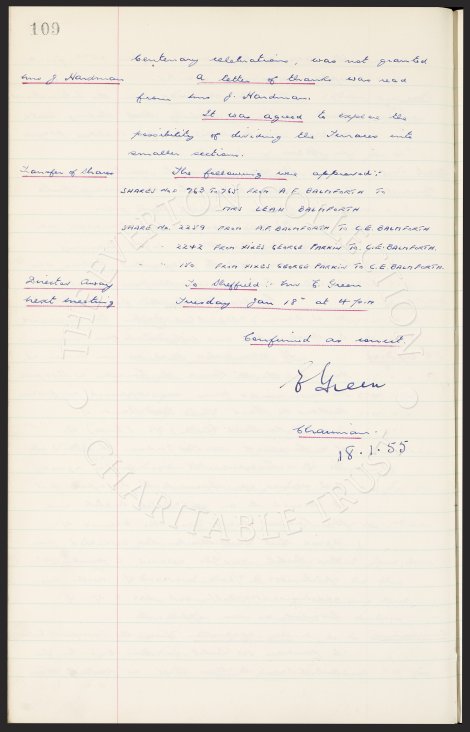 109
Centenary celebrations, was not granted
Mrs J. Hardman
A letter of thanks was read
from Mrs J. Hardman.
It was agreed to explore the
possibility of dividing the Terraces into
smaller sections.
Transfer of Shares
The following were approved:-
SHARES Nos 763 TO 765 FROM A.F. BALMFORTH TO
MRS LEAH BALMFORTH
SHARE No. 2259 FROM A.F. BALMFORTH TO C.E. BALMFORTH
" " 2242 FROM GEORGE PARKIN TO C.E. BALMFORTH.
" " 150 FROM GEORGE PARKIN TO C.E. BALMFORTH.
Director Away
To Sheffield:- Mr E Green
Next meeting
Tuesday Jan 18th at 4 p.m
Confirmed as correct
E Green
Chairman.
18.1.55
THE EVERTON COLLECTION
CHARITABLE TRUST